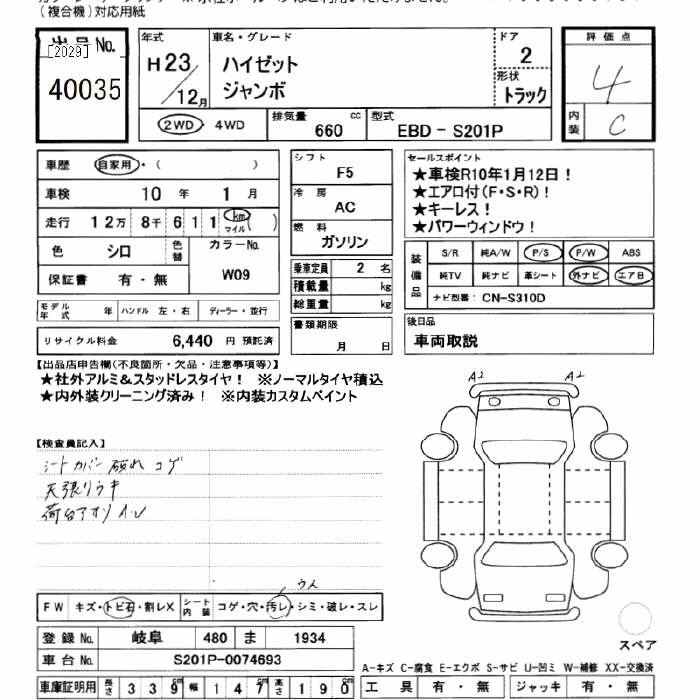 (複合機)対応用紙
出品No.
[2029]
40035
年式
H23/12月
車名・グレード
ハイゼット
ジャンボ
ドア
2
形状
トラック
2WD・4WD
排気量 660 cc
型式 EBD-S201P
評価点
4
内装 C
車歴 自家用・( )
車検 10年 1月
走行 12万 8千 6 1 1 km マイル ( )
色 シロ 色替
カラーNo.
W09
保証書 有・無
モデル年式 年 ハンドル 左・右 ディーラー・並行
リサイクル料金 6,440 円 預託済
シフト
F5
冷房
AC
燃料
ガソリン
乗車定員 2 名
積載量 kg
総重量 kg
書類期限
月 日
セールスポイント
★車検R10年1月12日!
★エアロ付(F・S・R)!
★キーレス!
★パワーウィンドウ!
装備品
S/R 純A/W P/S P/W ABS
純TV 純ナビ 革シート 外ナビ エアB
ナビ型番: CN-S310D
後日品
車両取説
【出品店申告欄(不良箇所・欠品・注意事項等)】
★社外アルミ&スタッドレスタイヤ! ※ノーマルタイヤ積込
★内外装クリーニング済み! ※内装カスタムペイント
【検査員記入】
シートカバー破れ コゲ
天張リウキ
荷台アオリ A・U
A2 A2
ウス
FW キズ・トビ石・割レX シート内装 コゲ・穴・汚レ・シミ・破レ・スレ
登録No. 岐阜 480 ま 1934
車台No. S201P-0074693
車庫証明用 長さ 339 幅 147 高さ 190
スペア
A-キズ C-腐食 E-エクボ S-サビ U-凹ミ W-補修 XX-交換済
工具 有・無 ジャッキ 有・無